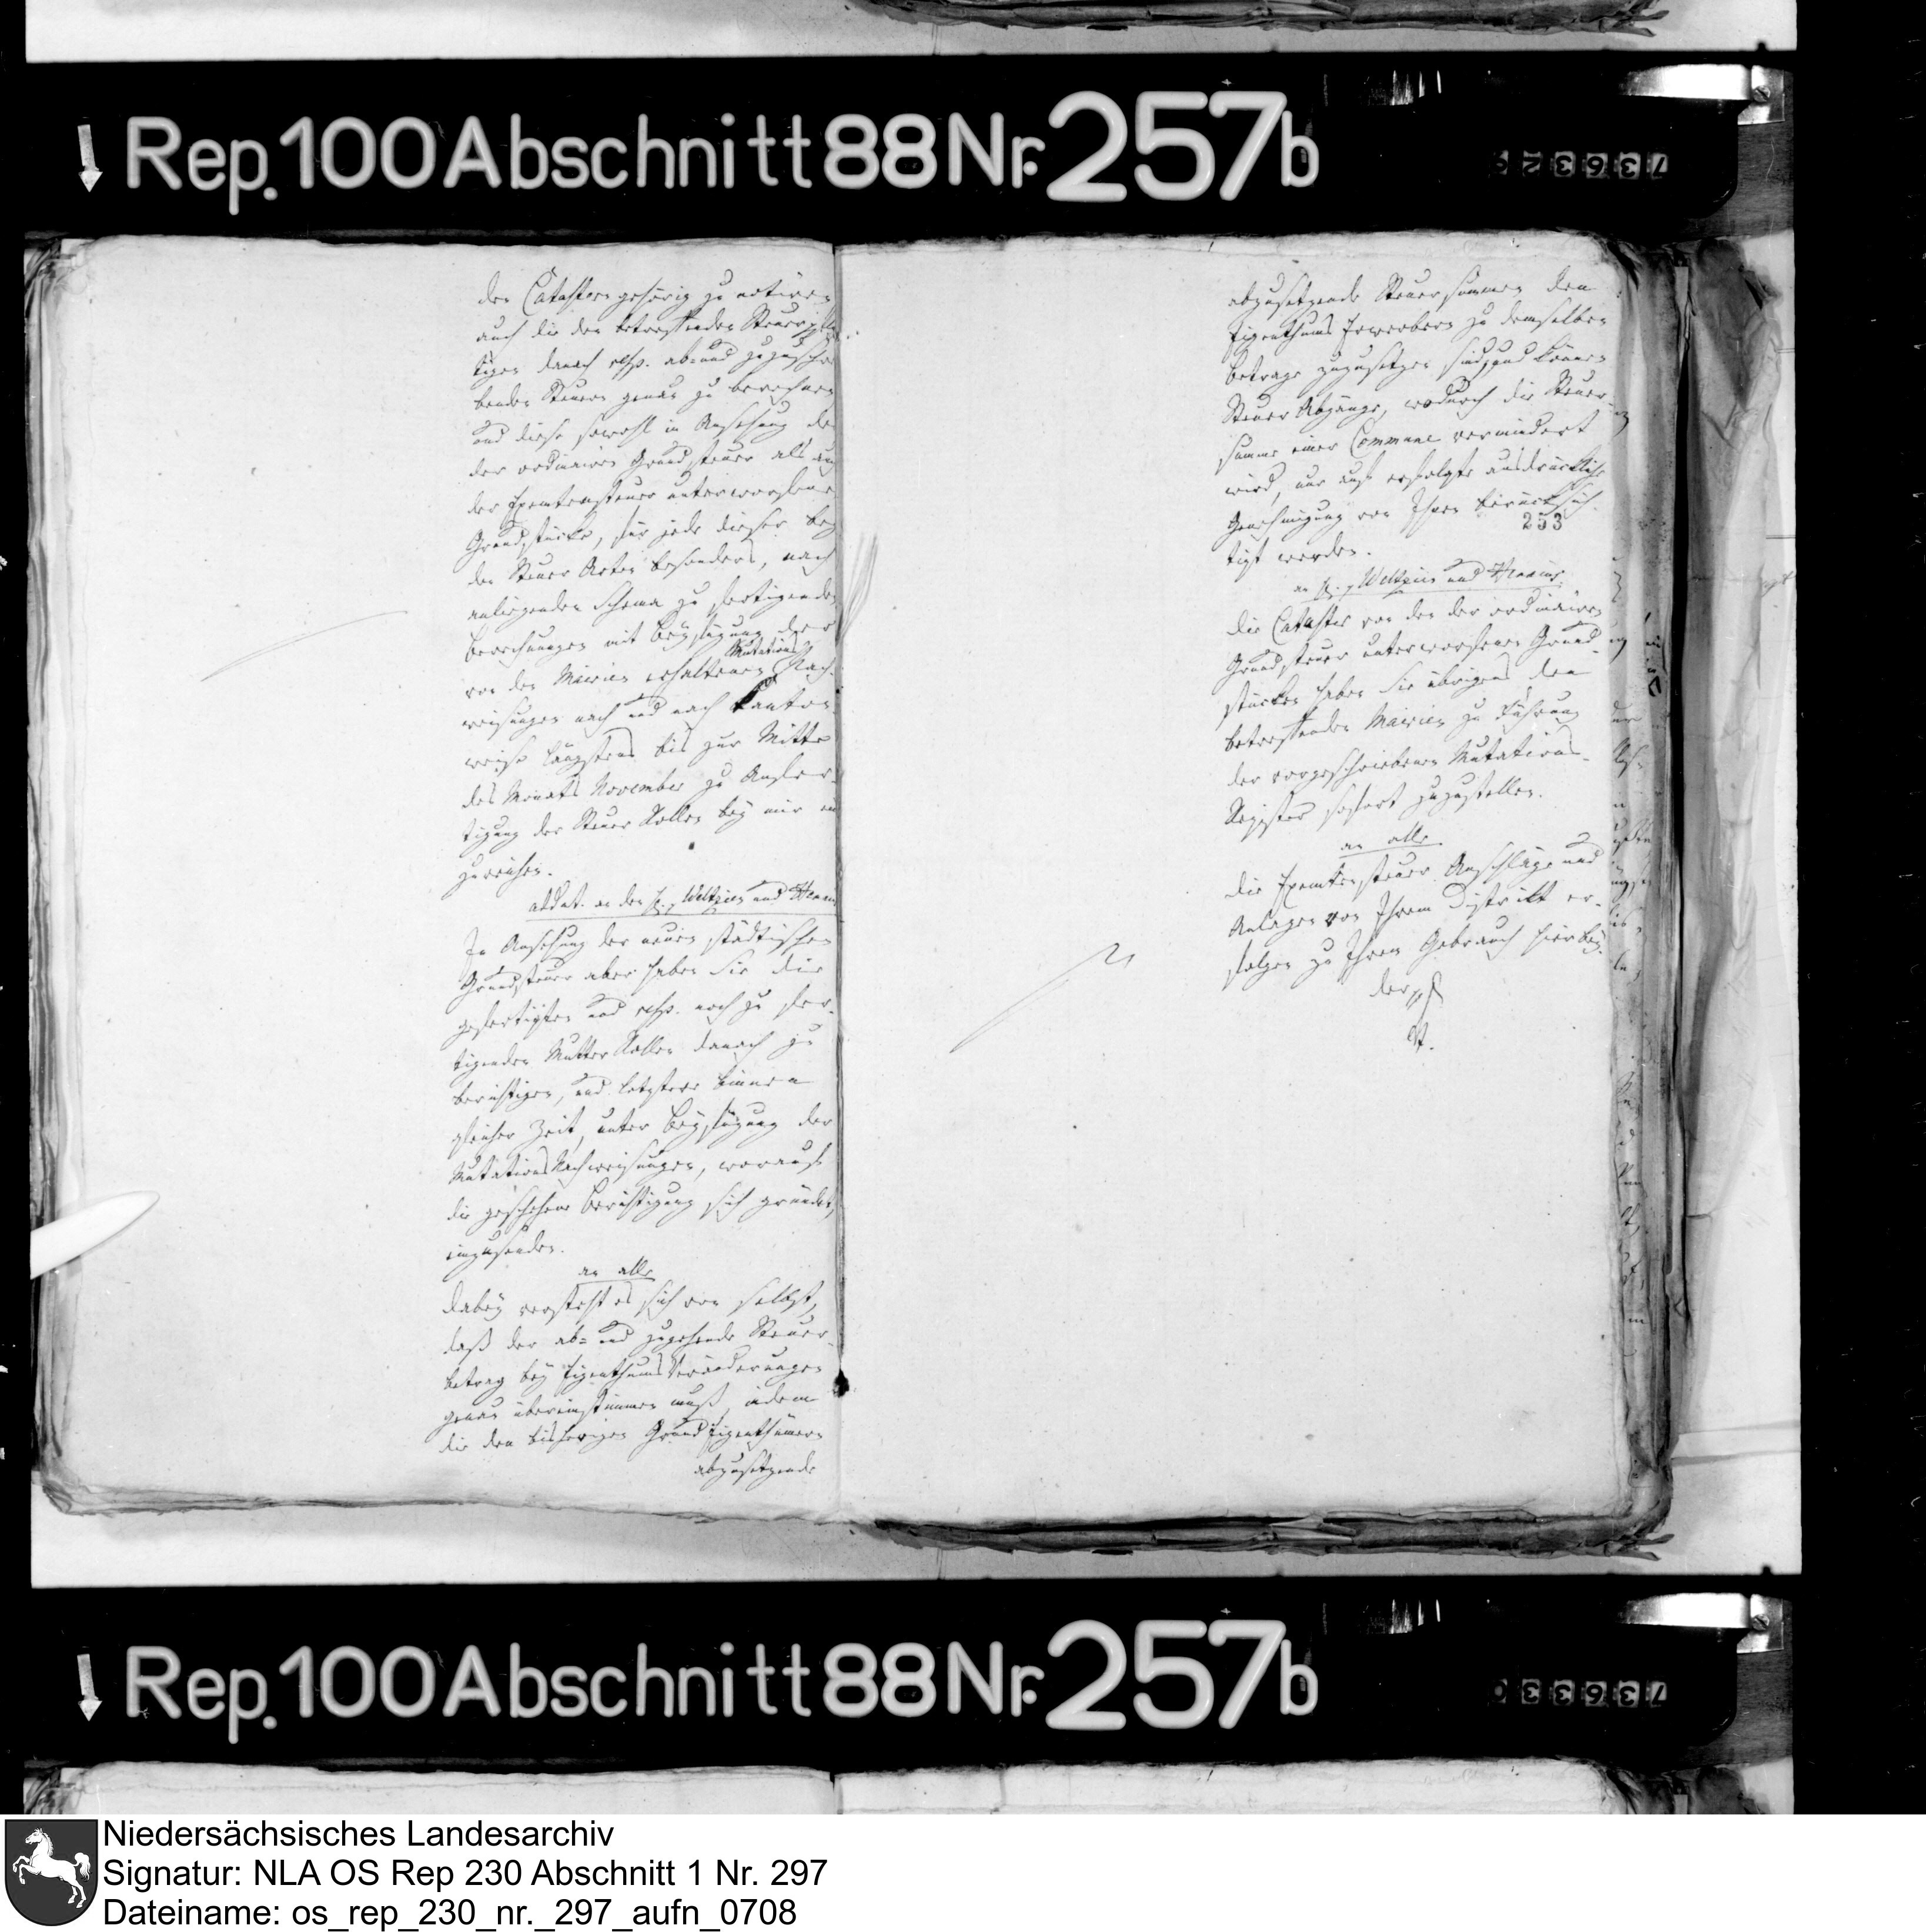 Rep. 100 Abschnitt 88 Nr. 257b
736329
den Catastern gehörig zu notiren
auch die den betreffenden Steuerpflich
tigen danach resp. ab= und zuzuschrei
benden Steuern genau zu berechnen
und diese sowohl in Ansehung der
der ordinairen Grundsteuer als auch
der Exemtensteuer unterworfenen
Grundstücke, für jede dieser bey
den Steuer Arten besonders, nach
anliegenden Schema zu fertigenden
Berechnungen mit Beyfügung der
von den Mairien erhaltenen Mutations Nach
weisungen nach und nach Canton
weise längstens bis zur Mitte
des Monats November zu Ausfer
tigung der Steuer Rollen bey mir ein
zureichen.
an den H. Weltzien und
In Ansehung der neuen städtischen
Grundsteuer aber haben Sie die
gefertigten und resp. noch zu fer
tigenden Mutter Rollen danach zu
berichtigen, und letztere binnen
gleicher Zeit, unter Beyfügung der
Mutations Nachweisungen, worauf
die geschehene Berichtigung sich gründet,
einzusenden.
an alle
Dabey versteht es sich von selbst,
daß der ab= und zugehende Steuer
betrag bey Eigenthums Veränderungen
genau übereinstimmen muß, indem
die den bisherigen Grund Eigenthümern
abzusetzende
abzusetzende Steuersummen den
Eigenthums Erwerbern zu demselben
Betrage zuzusetzen sind, und können
Steuer Abgänge, wodurch die Steuer
summe einer Commune vermindert
wird, nur auf erfolgte ausdrückliche
Genehmigung von Ihnen berücksich
253
tigt werden.
an H. Weltzien und
Die Cataster von den der ordinairen
Grundsteuer unterworfenen Grund
stücken haben Sie übrigens den
betreffenden Mairien zu Führung
der vorgeschriebenen Mutations
Register sofort zuzustellen.
an alle
Die Exemtensteuer Anschläge und
Anlagen von Ihrem District er
folgen zu Ihrem Gebrauch hierbey.
Rep. 100 Abschnitt 88 Nr. 257b
736330
Niedersächsisches Landesarchiv
Signatur: NLA OS Rep 230 Abschnitt 1 Nr. 297
Dateiname: os_rep_230_nr._297_aufn_0708